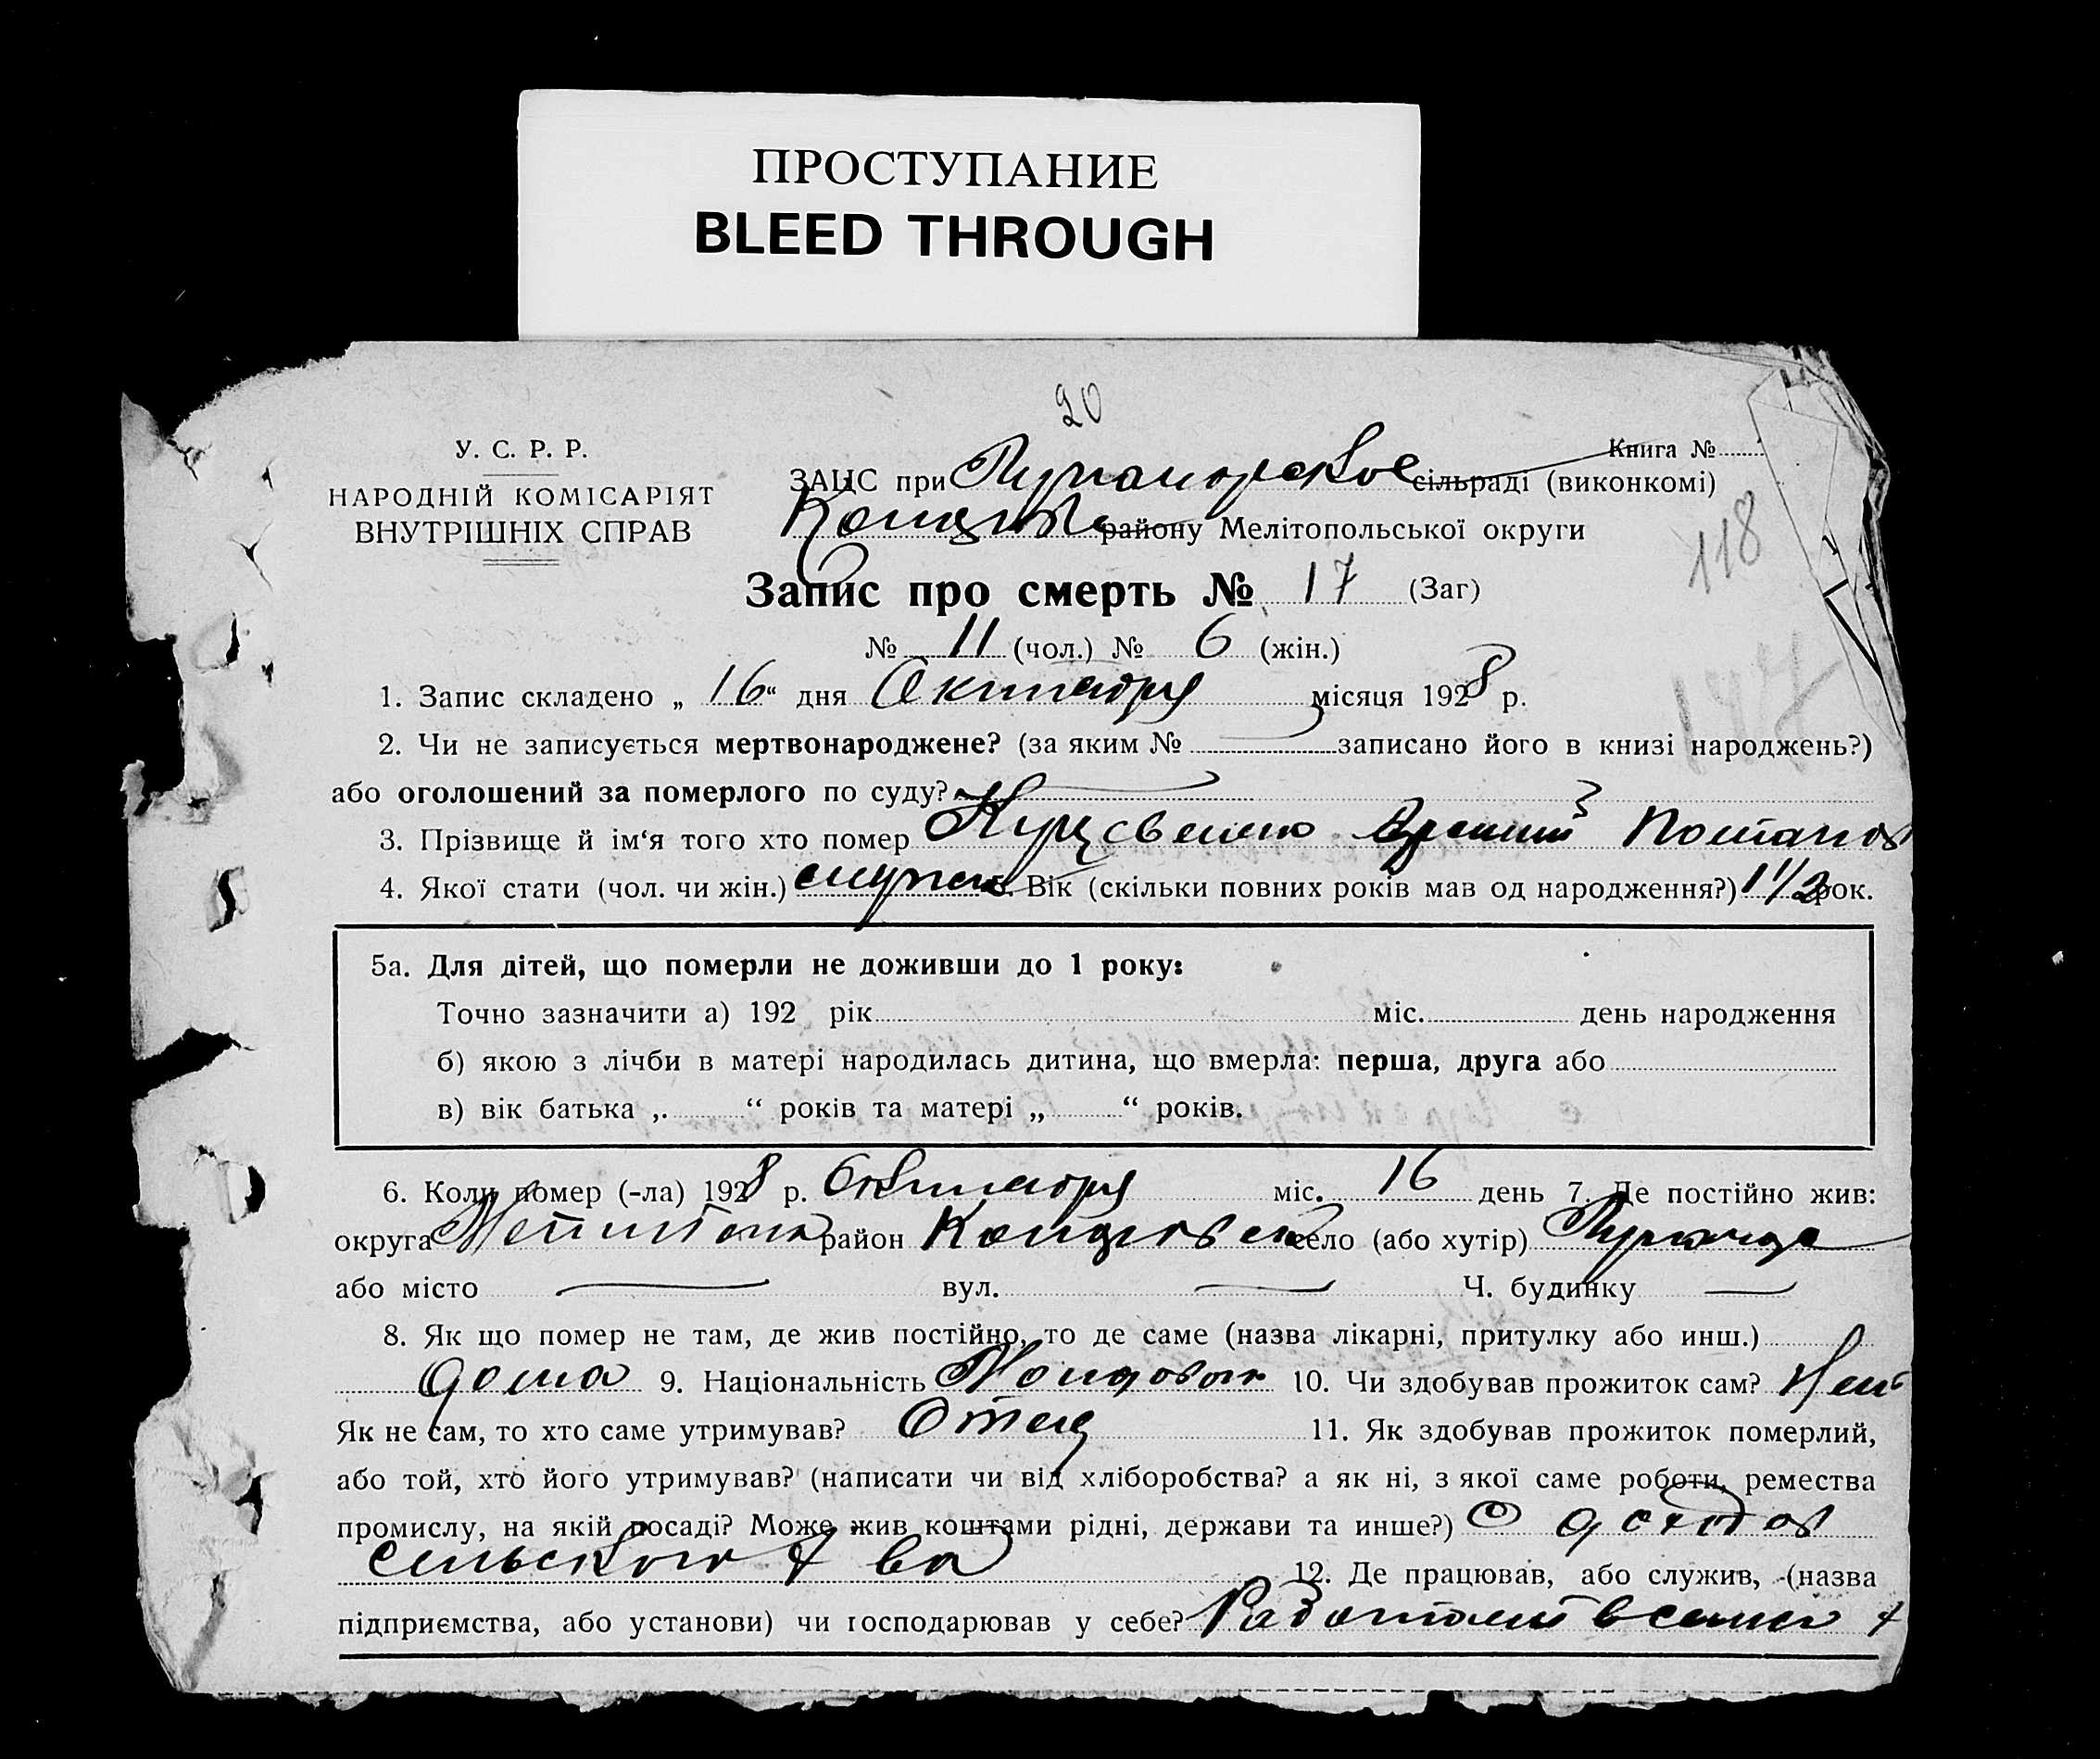 ПРОСТУПАНИЕ
BLEED THROUGH
20
У. С. Р. Р.
НАРОДНІЙ КОМІСАРІЯТ
ВНУТРІШНІХ СПРАВ
Книга №
ЗАЦС при сільраді (виконкомі)
району Мелітопольської округи
118
Запис про смерть № 17 (Заг)
№ 11 (чол.) № 6 (жін.)
1. Запис складено „ 16 “ дня Октября місяця 1928 р.
2. Чи не записується мертвонароджене? (за яким № записано його в книзі народжень?)
або оголошений за померлого по суду?
3. Прізвище й ім‘я того хто помер
4. Якої стати (чол. чи жін.) Вік (скільки повних років мав од народження?) 1 1/2 рок.
5а. Для дітей, що померли не доживши до 1 року:
Точно зазначити а) 192 рік міс. день народження
б) якою з лічби в матері народилась дитина, що вмерла: перша, друга або
в) вік батька „ “ років та матері „ “ років.
6. Коли помер (-ла) 1928 р. Октября міс. 16 день 7. Де постійно жив:
округа район село (або хутір)
або місто — вул. — Ч. будинку —
8. Як що помер не там, де жив постійно, то де саме (назва лікарні, притулку або инш.)
дома 9. Національність 10. Чи здобував прожиток сам? Нет
Як не сам, то хто саме утримував? Отец 11. Як здобував прожиток померлий,
або той, хто його утримував? (написати чи від хліборобства? а як ні, з якої саме роботи, ремества
промислу, на якій посаді? Може жив коштами рідні, держави та инше?) С доходов
сельского х ва 12. Де працював, або служив, (назва
підприємства, або установи) чи господарював у себе? Работает в